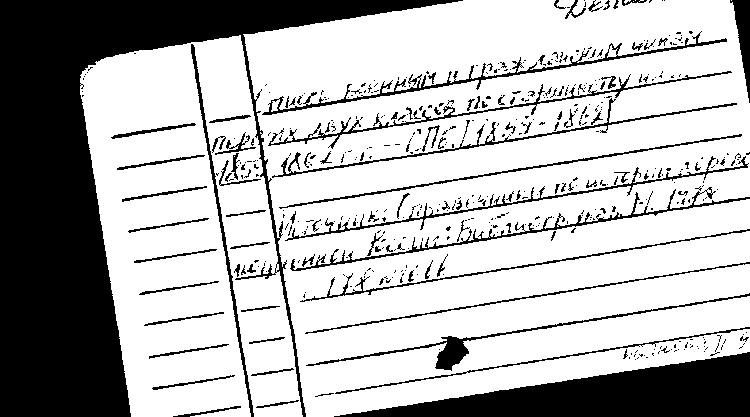 Списк военным и гражданским чинам
первых двух классов по старшинству на
1859, 186 г.г. — СПб. [1859-1862]
Источник: Справочники по истории дорево
люционной России: Библиогр. указ. М. 1978
с. 178, №